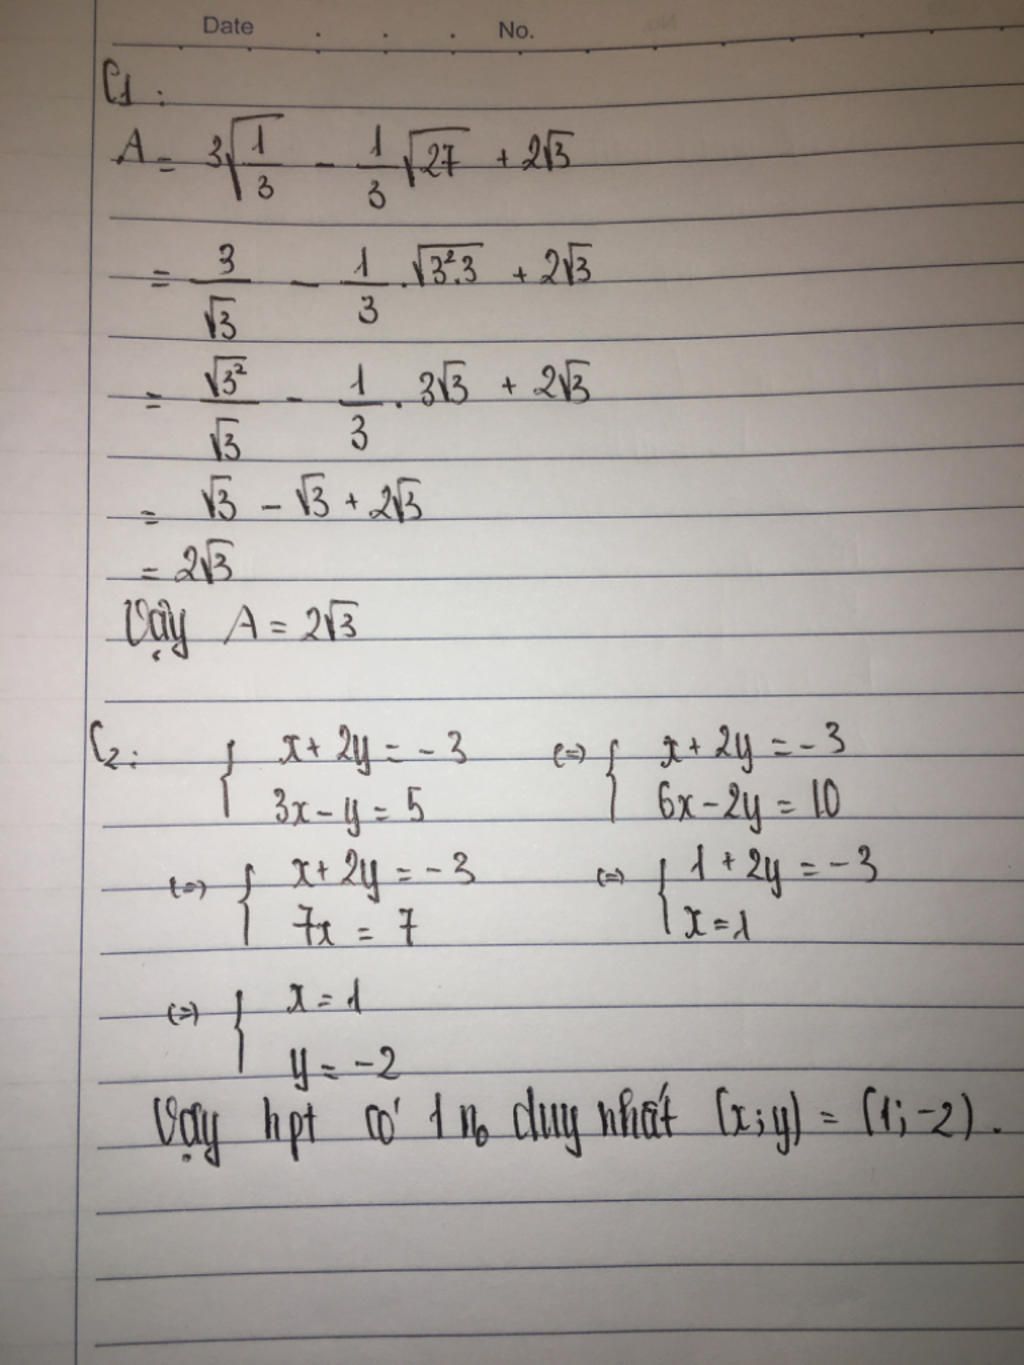 Date . . . No.
C1:
A = 3√(1/3) - 1/3 √27 + 2√3
= 3/√3 - 1/3 . √(3².3) + 2√3
= √3²/√3 - 1/3 . 3√3 + 2√3
= √3 - √3 + 2√3
= 2√3
Vậy A = 2√3
C2: { x + 2y = -3 (=) { x + 2y = -3
3x - y = 5 6x - 2y = 10
(=) { x + 2y = -3 (=) { 1 + 2y = -3
7x = 7 x = 1
(=) { x = 1
y = -2
Vậy hpt có 1 no duy nhất (x;y) = (1;-2).